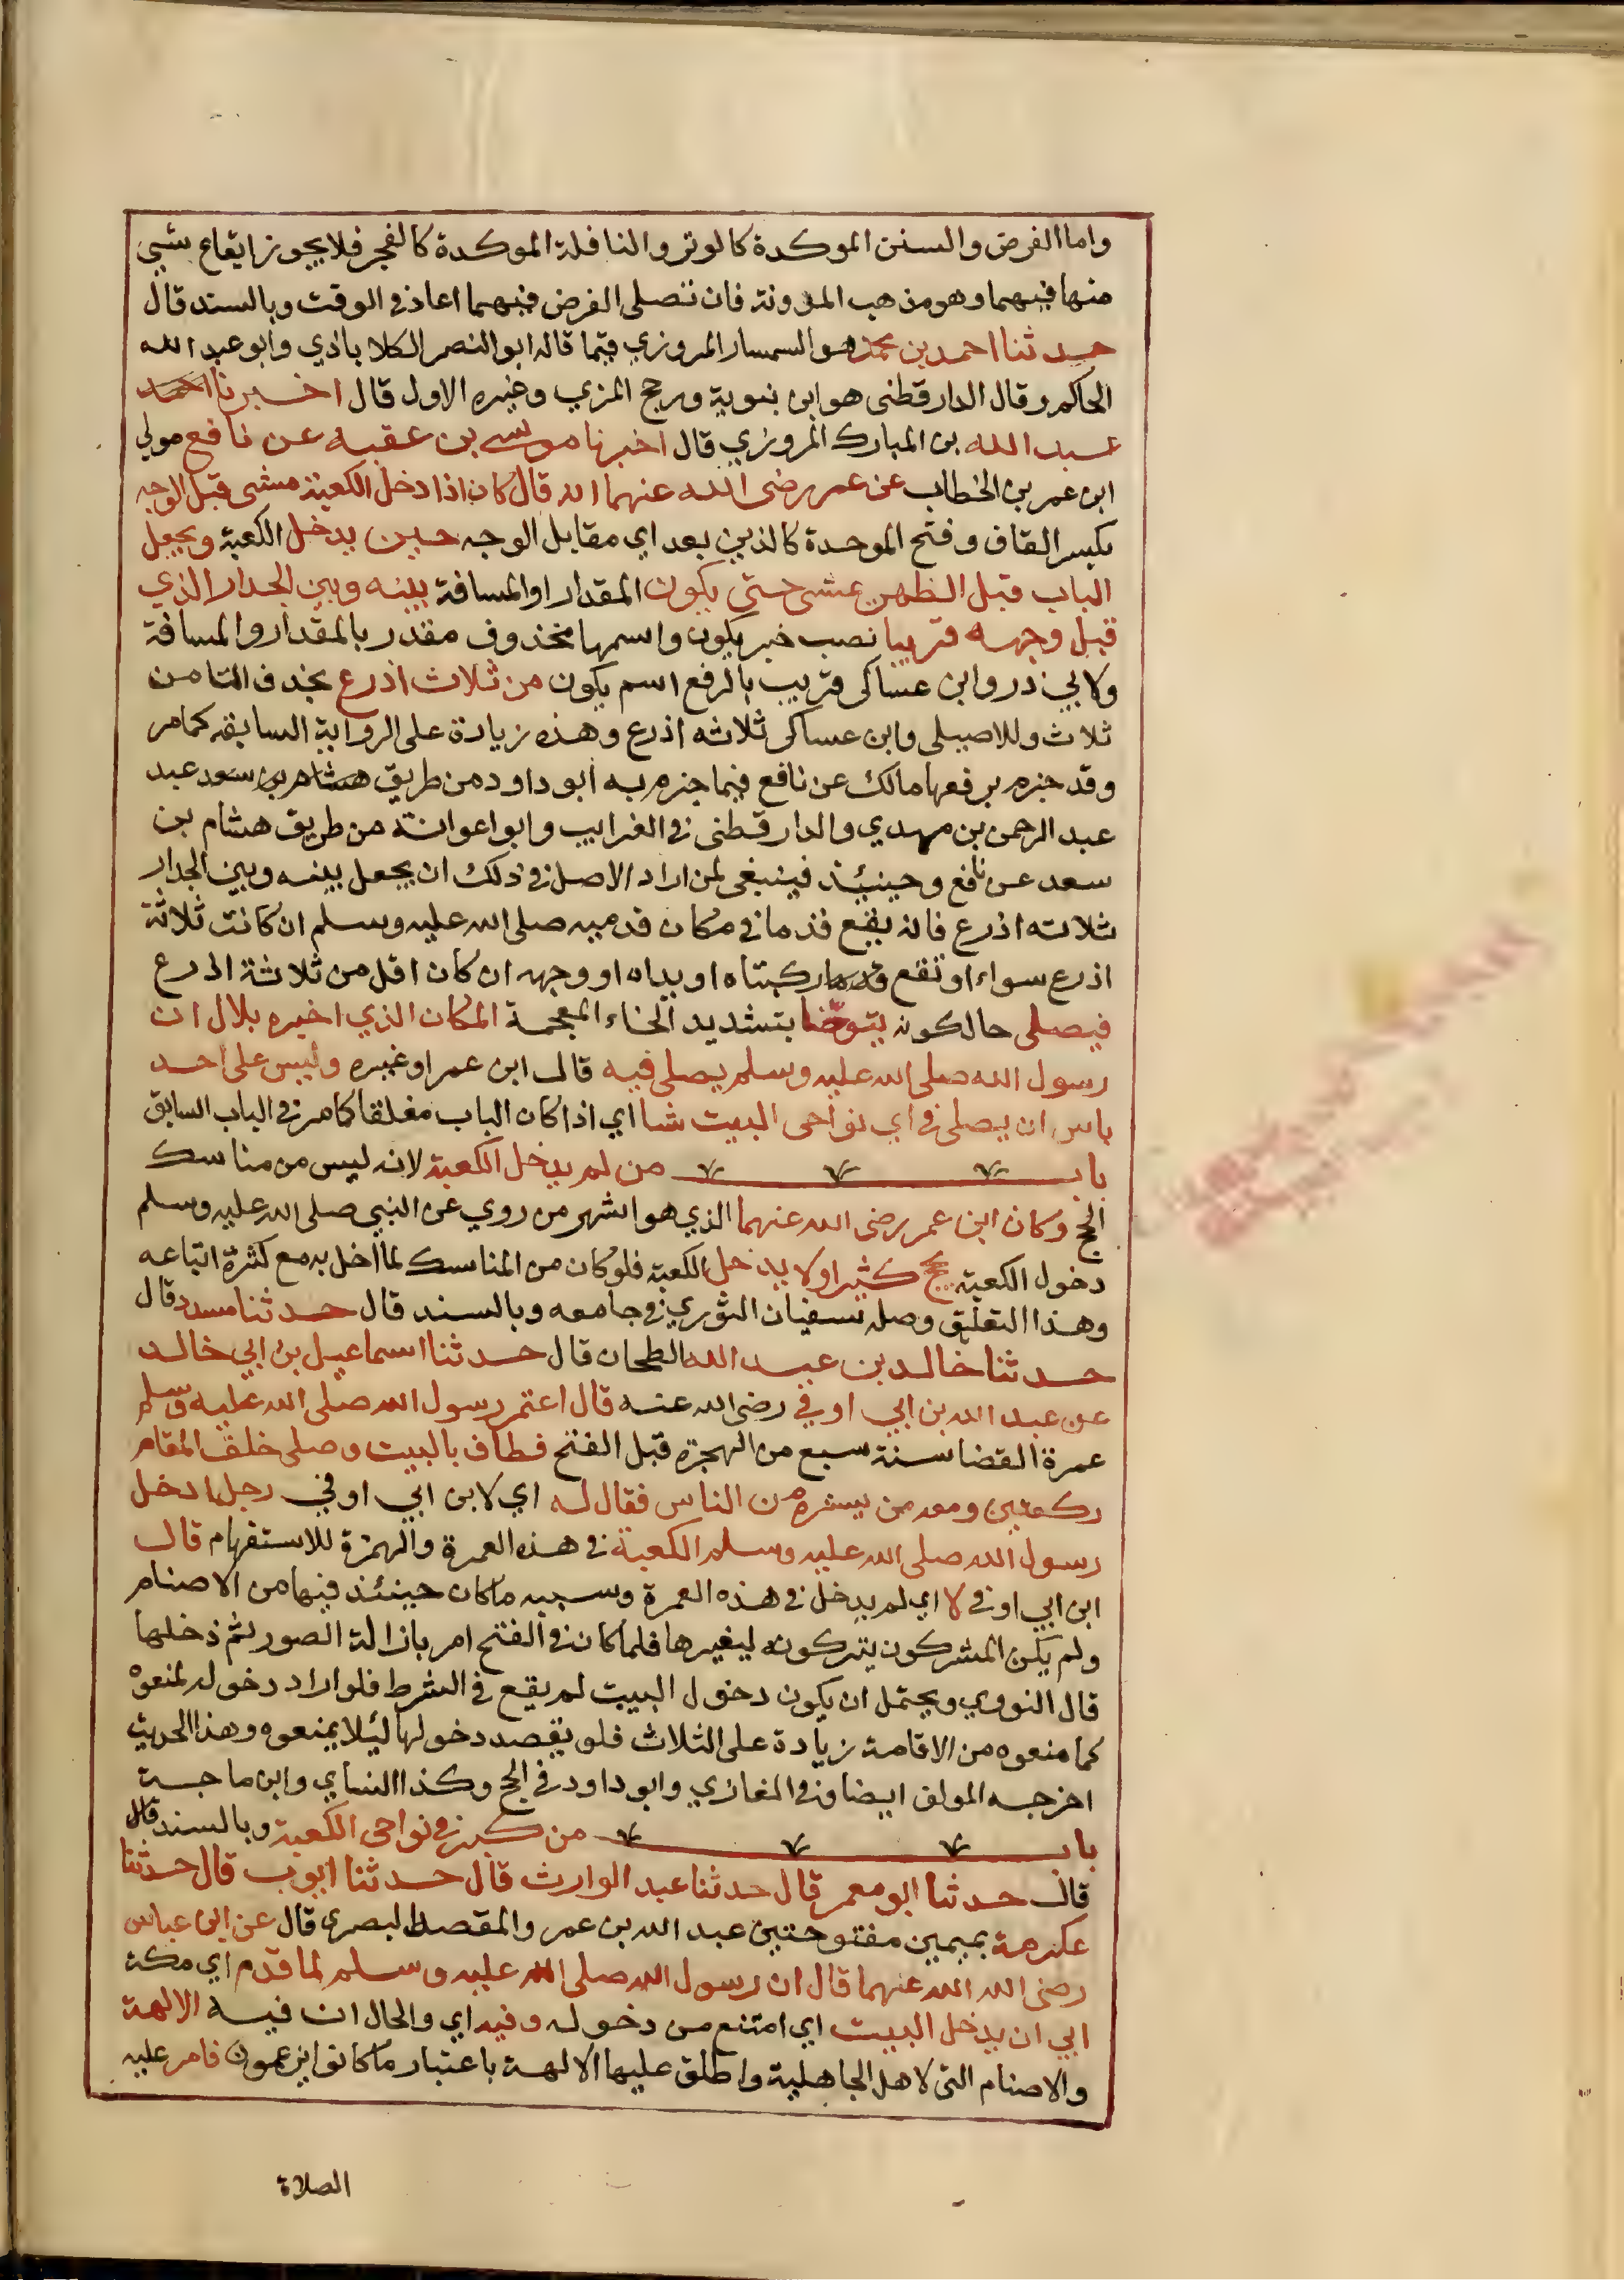 واما الفرض والسنن الموكدة كالوتر والنافلة الموكدة كالفجر فلا يجوز ايقاع شيي
منها فيهما وهو مذهب المدونة فان تصلى الفرض فيهما اعاد في الوقت وبالسند قال
حدثنا احمد بن محمد هو السمسار المروزي فيما قاله ابو النصر الكلاباذي وابو عبد الله
الحاكم وقال الدارقطني هو ابن بنوية ورجح المزي وغيره الاول قال اخبرنا احمد
عبد الله بن المبارك المروزي قال اخبرنا موسى بن عقبه عن نافع مولي
ابن عمر بن الخطاب عن عمر رضى الله عنهما انه قال كان اذا دخل الكعبة مشى قبل الوجه
بكسر القاف وفتح الموحدة كالذين بعد اي مقابل الوجه حين يدخل الكعبة ويجعل
الباب قبل الظهر يمشى حتى يكون المقدار او المسافة بينه وبين الجدار الذي
قبل وجهه قريبا نصب خبر يكون واسمها محذوف مقدر بالمقدار والمسافة
ولابي ذر وابن عساكر قريب بالرفع اسم يكون من ثلاث اذرع بحذف التا من
ثلاث وللاصيلى وابن عساكر ثلاثه اذرع وهذه زيادة على الرواية السابقه كما مر
وقد جزم برفعها مالك عن نافع فيما جزم به ابو داود من طريق هشام بن سعد عبد
عبد الرحمن بن مهدي والدارقطنى في الغرايب وابو اعوانة من طريق هشام بن
سعد عن نافع وحينيذ فينبغى لمن اراد الاصل في ذلك ان يجعل بينه وبين الجدار
ثلاثه اذرع فانه يقع قدماه في مكان قدميه صلى الله عليه وسلم ان كانت ثلاثة
اذرع سواء او تقع ركبتاه او يداه او وجهه ان كان اقل من ثلاثة اذرع
فيصلى حال كونه يتوخا بتشديد الخاء المعجمة المكان الذي اخبره بلال ان
رسول الله صلى الله عليه وسلم يصلى فيه قال ابن عمر او غيره وليس على احد
باس ان يصلى في اي نواحى البيت شا اي اذا كان الباب مغلقا كما مر في الباب السابق
باب من لم يدخل الكعبة لانه ليس من مناسك
الحج وكان ابن عمر رضى الله عنهما الذي هو اشهر من روي عن النبي صلى الله عليه وسلم
دخول الكعبة يحج كثيرا ولا يدخل الكعبة فلو كان من المناسك لما اخل به مع كثرة اتباعه
وهذا التعليق وصله سفيان الثوري في جامعه وبالسند قال حدثنا مسدد قال
حدثنا خالد بن عبد الله الطحان قال حدثنا اسماعيل بن ابي خالد
عن عبد الله بن ابي اوفي رضى الله عنه قال اعتمر رسول الله صلى الله عليه وسلم
عمرة القضا سنة سبع من الهجرة قبل الفتح فطاف بالبيت وصلى خلف المقام
ركعتين ومعه من يستره من الناس فقال له اي لابن ابي اوفي رجل ادخل
رسول الله صلى الله عليه وسلم الكعبة في هذه العمرة والهمزة للاستفهام قال
ابن ابي اوفي لا اي لم يدخل في هذه العمرة وسببه ما كان حينئذ فيها من الاصنام
ولم يكن المشركون يتركونه ليغيرها فلما كان في الفتح امر بازالة الصور ثم دخلها
قال النووي ويحتمل ان يكون دخول البيت لم يقع في الشرط فلو اراد دخوله لمنعوه
كما منعوه من الاقامة زيادة على الثلاث فلو يقصد دخولها ليلا يمنعوه وهذا الحديث
اخرجه المولف ايضا في المغازي وابو داود في الحج وكذا النساي وابن ماجة
باب من كبر في نواحى الكعبة وبالسند قال
قال حدثنا ابو معمر قال حدثنا عبد الوارث قال حدثنا ايوب قال حدثنا
عكرمة بميمين مفتوحتين عبد الله بن عمر والمقصد البصري قال عن ابن عباس
رضى الله الله عنهما قال ان رسول الله صلى الله عليه وسلم لما قدم اي مكة
ابي ان يدخل البيت اي امتنع من دخوله وفيه اي والحال ان فيه الالهة
والاصنام التي لاهل الجاهلية واطلق عليها الالهة باعتبار ما كانوا يزعمون فامر عليه
الصلاة